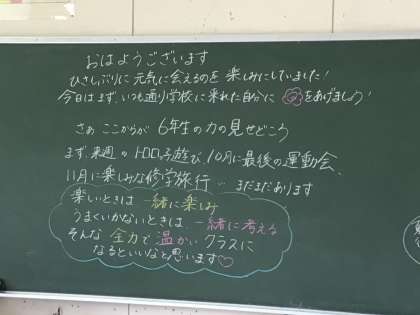 おはようございます
ひさしぶりに元気に会えるのを楽しみにしていました!
今日はまず、いつも通り学校に来れた自分に をあげましょう!
さぁ ここからが 6年生の力の見せどころ
まず来週の 遊び 10月に最後の運動会、
11月に楽しみな修学旅行… まだまだあります
楽しいときは 一緒に楽しみ
うまくいかないときは、一緒に考える
そんな 全力で温かいクラスに
なるといいなと思います♡